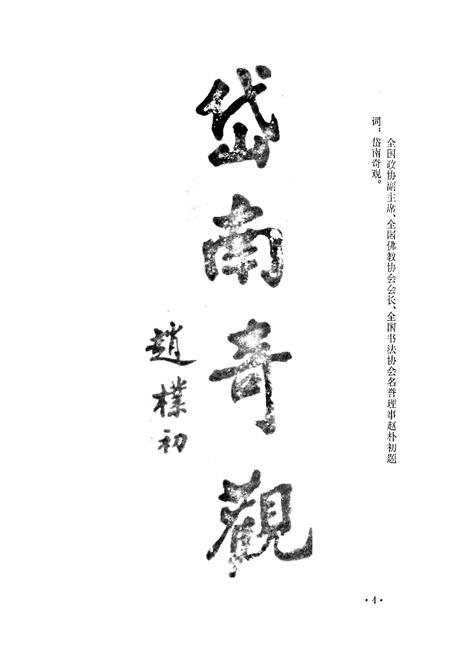 岱南奇觀
趙樸初
全国政协副主席、全国佛教协会会长、全国书法协会名誉理事赵朴初题
词：岱南奇观。
·4·